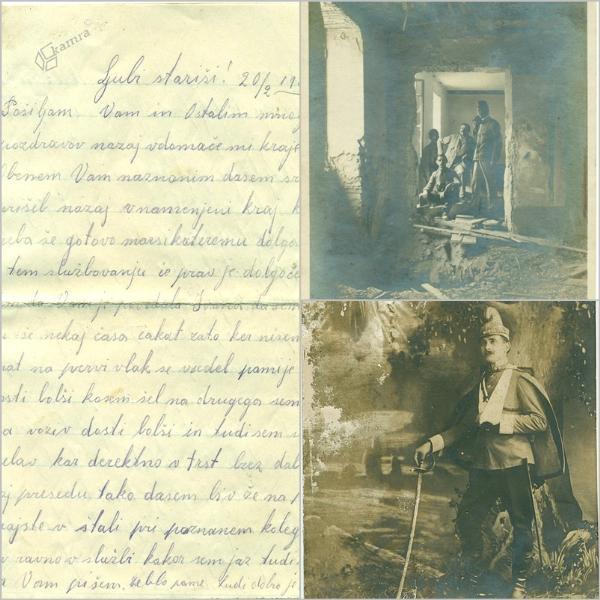 kamra
Ljubi stariši! 20/2 19
Pošiljam Vam in Ostalim mnog
pozdravov nazaj vdomače mi kraje
Obenem Vam naznanim dasem sr
rišel nazaj vnamenjeni kraj k
še gotovo marsikateremu dolgo
tem službovanju če prav je dolgoč
da Vam je dasem
se nekaj časa čakat zato ker nisem
at na pervi vlak se vsedel pa mi je
sti bolši kosem šel na drugega sem
a voziv dosti bolši in tudi sem
kar derektno v trst brez dal
presedu tako dasem
v štali pri poznanem koleg
v ravno v službi kakor sem jaz tudi
Vam pišem, tudi dobro je